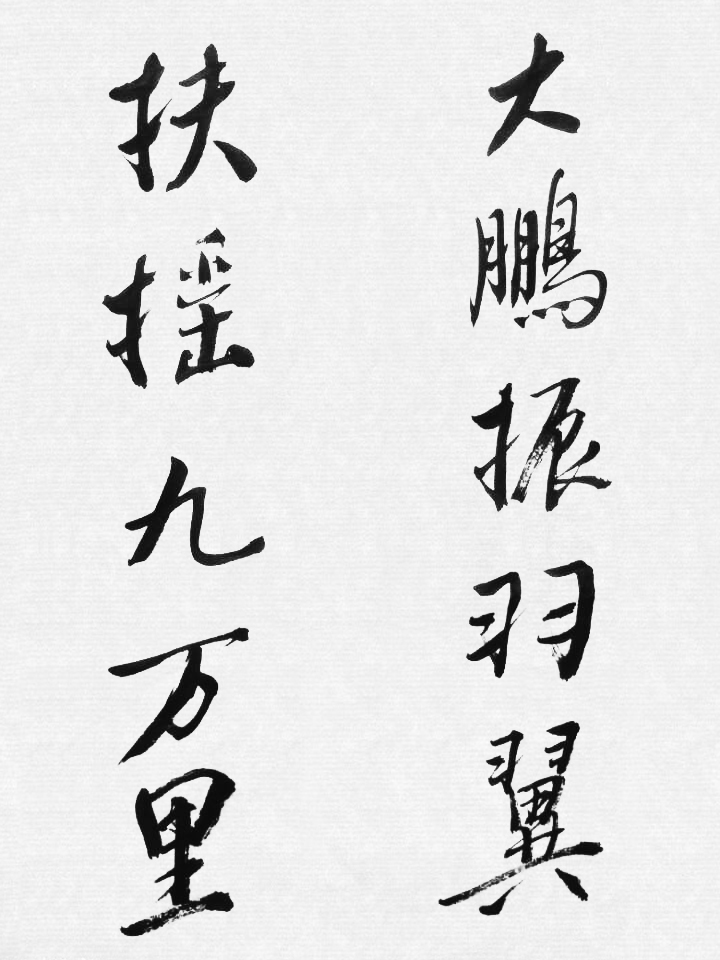 大鹏振羽翼
扶摇九万里